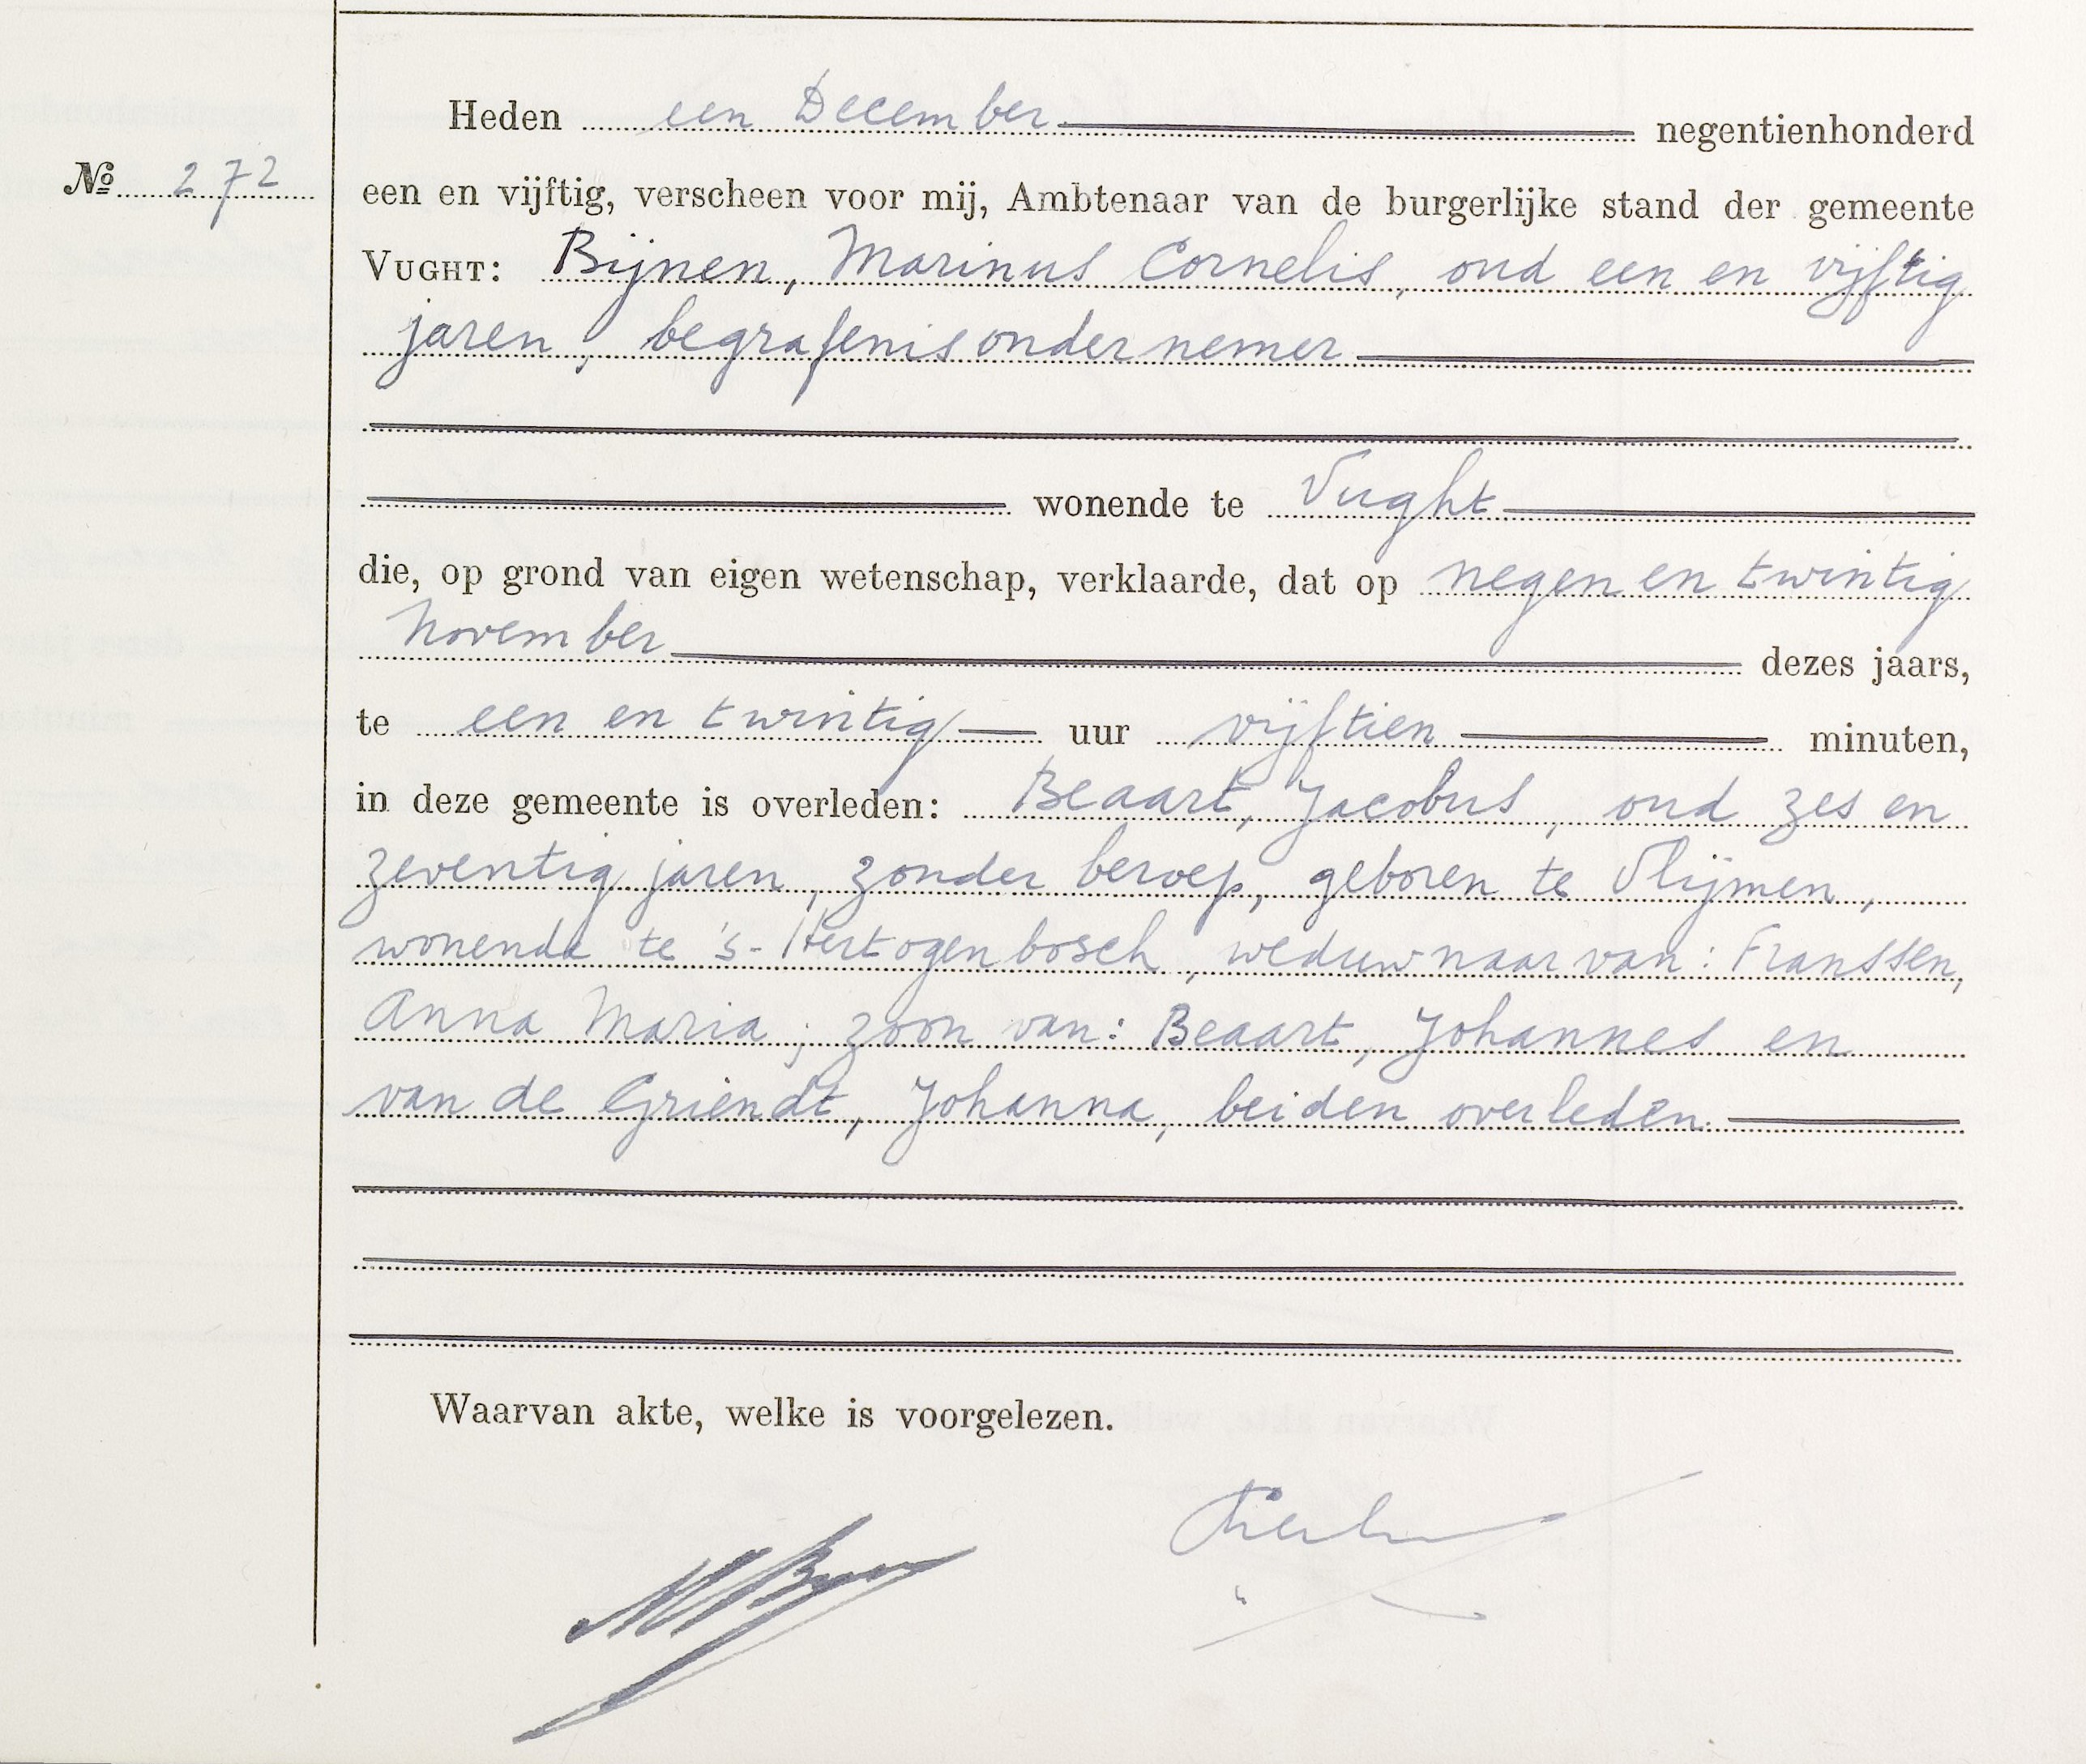 Heden een December negentienhonderd
No 272
een en vijftig, verscheen voor mij, Ambtenaar van de burgerlijke stand der gemeente
VUGHT: Bijnen, Marinus Cornelis, oud een en vijftig
jaren, begrafenisondernemer
wonende te Vught
die, op grond van eigen wetenschap, verklaarde, dat op negen en twintig
November dezes jaars,
te een en twintig uur vijftien minuten,
in deze gemeente is overleden: Beaart, Jacobus, oud zes en
zeventig jaren, zonder beroep, geboren te Vlijmen,
wonende te 's-Hertogenbosch, weduwnaar van: Franssen,
Anna Maria; zoon van: Beaart, Johannes en
van de Griendt, Johanna, beiden overleden.
Waarvan akte, welke is voorgelezen.